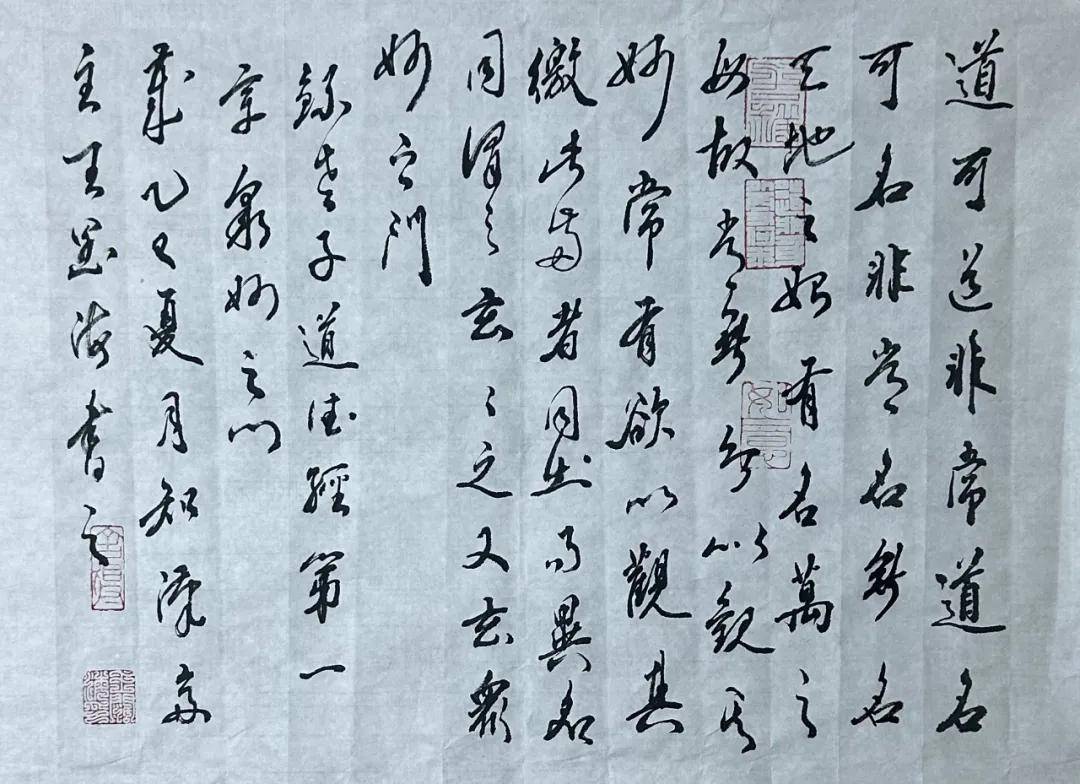 道可道非常道名
可名非常名無名
天地之始有名萬之
母故常無欲以觀其
妙常有欲以觀其
徼此兩者同出而異名
同謂之玄々之又玄眾
妙之門
錄老子道德經第一
章眾妙之門
歲乙巳夏月知齋
主王海書之
如意